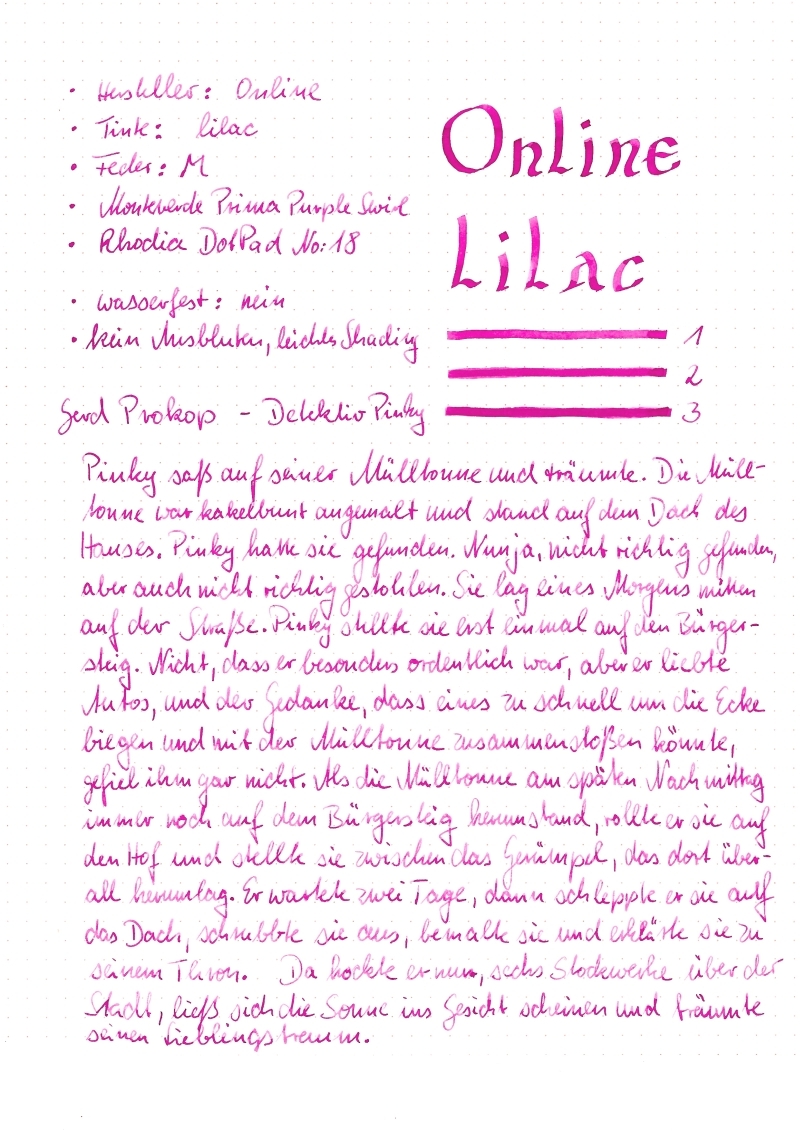 • Hersteller: Online
• Tinte: lilac
• Feder: M
• Monteverde Prima Purple Swirl
• Rhodia DotPad No: 18
• wasserfest: nein
• kein Ausbluten, leichtes Shading
Online
Lilac
1
2
3
Gerd Prokop - Detektiv Pinky
Pinky saß auf seiner Mülltonne und träumte. Die Müll-
tonne war kakelbunt angemalt und stand auf dem Dach des
Hauses. Pinky hatte sie gefunden. Nun ja, nicht richtig gefunden,
aber auch nicht richtig gestohlen. Sie lag eines Morgens mitten
auf der Straße. Pinky stellte sie erst einmal auf den Bürger-
steig. Nicht, dass er besonders ordentlich war, aber er liebte
Autos, und der Gedanke, dass eines zu schnell um die Ecke
biegen und mit der Mülltonne zusammenstoßen könnte,
gefiel ihm gar nicht. Als die Mülltonne am späten Nachmittag
immer noch auf dem Bürgersteig herumstand, rollte er sie auf
den Hof und stellte sie zwischen das Gerümpel, das dort über-
all herumlag. Er wartete zwei Tage, dann schleppte er sie auf
das Dach, schrubbte sie aus, bemalte sie und erklärte sie zu
seinem Thron. Da hockte er nun, sechs Stockwerke über der
Stadt, ließ sich die Sonne ins Gesicht scheinen und träumte
seinen Lieblingstraum.